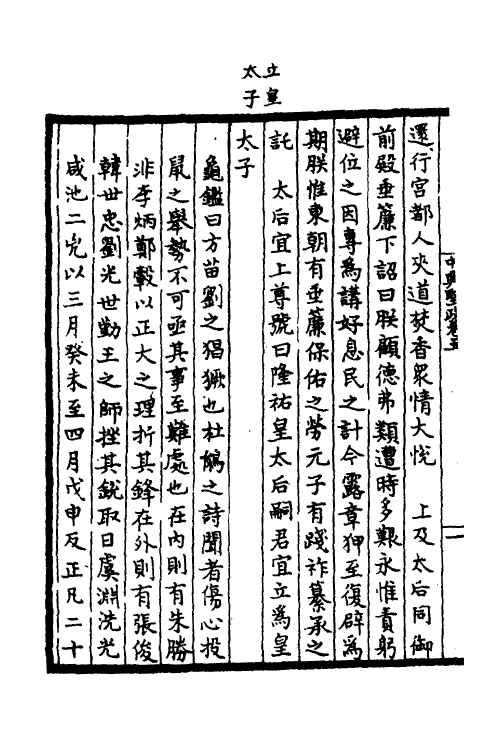 立皇
太子
中興聖政卷五
一
還行宮都人夾道焚香衆情大悅　上及太后同御
前殿垂簾下詔曰朕顧德弗類遭時多艱永惟責躬
避位之因專爲講好息民之計今露章狎至復辟爲
期朕惟東朝有垂簾保佑之勞元子有踐祚纂承之
託　太后宜上尊號曰隆祐皇太后嗣君宜立爲皇
太子
龜鑑曰方苗劉之猖獗也杜鵑之詩聞者傷心投
鼠之舉勢不可亟其事至難處也在內則有朱勝
非李炳鄭瑴以正大之理折其鋒在外則有張俊
韓世忠劉光世勤王之師挫其銳取日虞淵洗光
咸池二兇以三月癸未至四月戊申反正凡二十